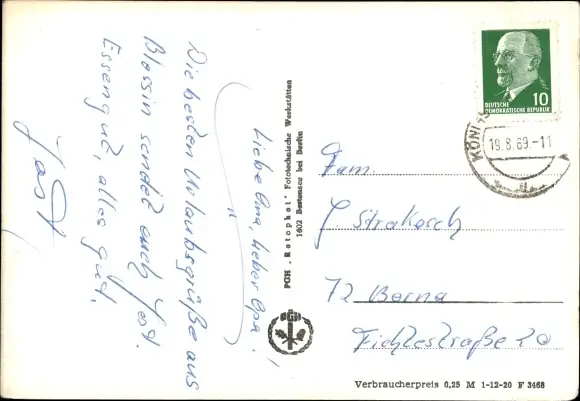 Liebe Oma, lieber Opa!
Die besten Urlaubsgrüße aus
Blossin sendet euch Jost.
Essen gut, alles gut.
Jost
PGH „Retophot" Fototechnische Werkstätten
1602 Bestensee bei Berlin
DEUTSCHE
DEMOKRATISCHE REPUBLIK
10
KÖNI
19.8.69.-11
Fam.
J. Strakosch
72 Borna
Fichtestraße 20
Verbraucherpreis 0,25 M 1-12-20 F 3468